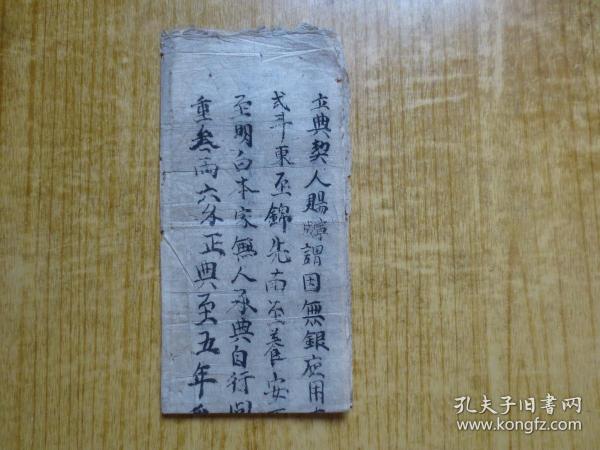 立典契人賜謂因無銀应用
弍斗東至錦先南至養安
至明白本家無人承典自行
重叁両六分正典至五年
孔夫子旧书网
www.kongfz.com